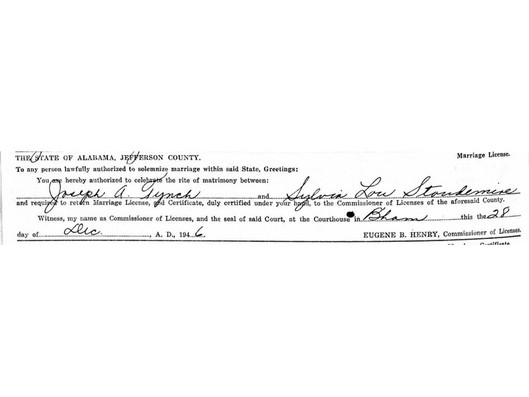 THE STATE OF ALABAMA, JEFFERSON COUNTY. Marriage License.
To any person lawfully authorized to solemnize marriage within said State, Greetings:
You are hereby authorized to celebrate the rite of matrimony between:
Joseph A. Tynch and Sylvia Lou Stoudemire
and required to return Marriage License, and Certificate, duly certified under your hand, to the Commissioner of Licenses of the aforesaid County.
Witness, my name as Commissioner of Licenses, and the seal of said Court, at the Courthouse in Bham this the 28
day of Dec. A. D., 1946. EUGENE B. HENRY, Commissioner of Licenses.